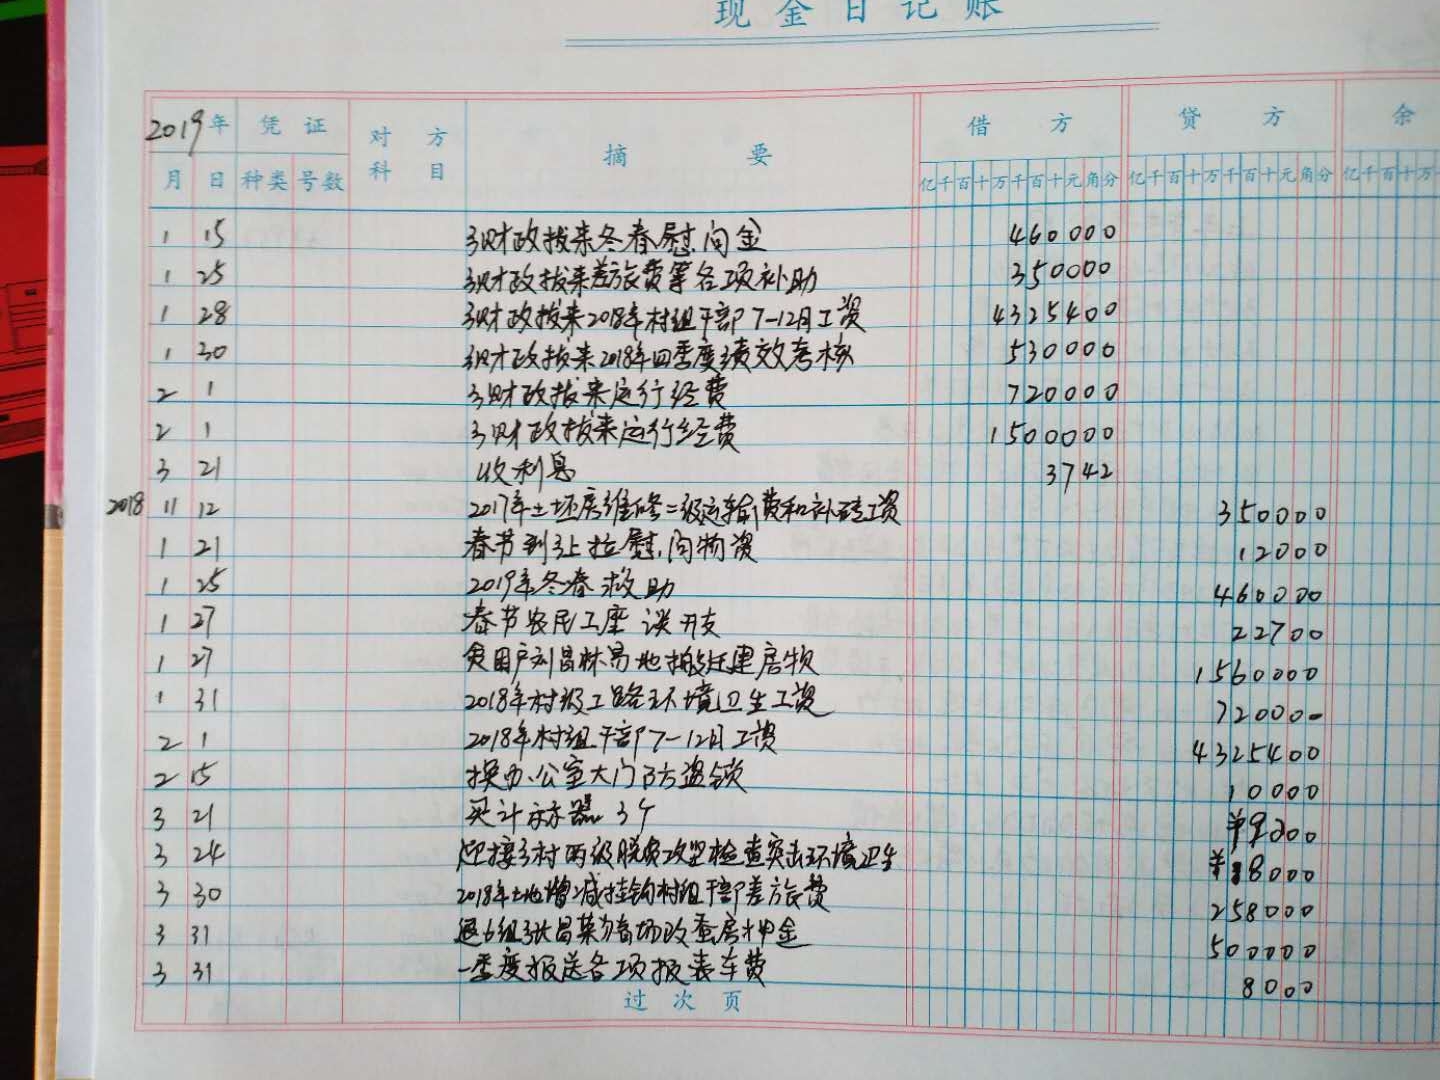 现金日记账
2019年 凭证 对方科目 摘要 借方 贷方 余
月 日 种类 号数 亿千百十万千百十元角分 亿千百十万千百十元角分 亿千百十万
1 15 乡财政拔来冬春慰问金 460000
1 25 乡财政拔来差旅费等各项补助 350000
1 28 乡财政拔来2018年村组干部7-12月工资 4325400
1 30 乡财政拔来2018年四季度绩效考核 530000
2 1 乡财政拔来运行经费 720000
2 1 乡财政拔来运行经费 1500000
3 21 收利息 3742
2018 11 12 2017年土坯房维修二级运输费和补砖工资 350000
1 21 春节到乡上拉慰问物资 12000
1 25 2019年冬春救助 460000
1 27 春节农民工座谈开支 22700
1 27 贫困户刘昌林易地搬迁建房 1560000
1 31 2018年村级工路环境卫生工资 720000
2 1 2018年村组干部7-12月工资 4325400
2 15 换办公室大门防盗锁 10000
3 21 买计示器3个 ¥9200
3 24 迎接乡村两级脱贫攻坚检查突击环境卫生 ¥18000
3 30 2018年土地增减挂钩村组干部差旅费 258000
3 31 退6组张昌荣 场改蚕房押金 500000
3 31 一季度报送各项报表车费 8000
过次页